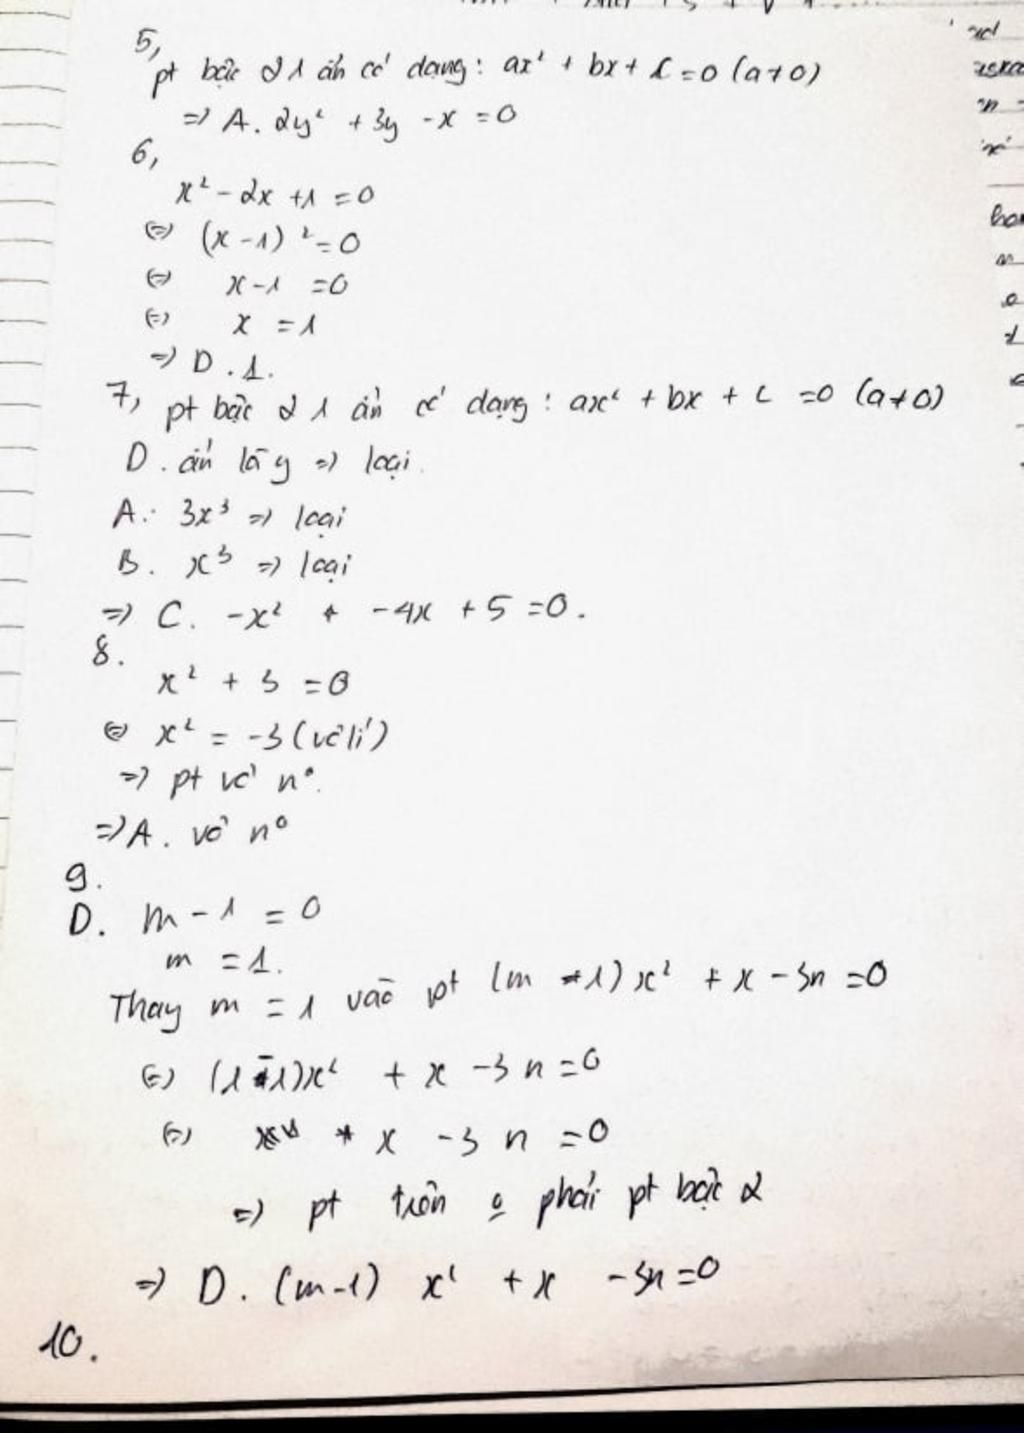 5,
pt bậc 2 1 ẩn có dạng: ax² + bx + c = 0 (a ≠ 0)
=> A. 2y² + 3y - x = 0
6,
x² - 2x + 1 = 0
<=> (x - 1)² = 0
<=> x - 1 = 0
<=> x = 1
=> D. 1.
7, pt bậc 2 1 ẩn có dạng: ax² + bx + c = 0 (a ≠ 0)
D. ẩn là y => loại.
A. 3x³ => loại
B. x³ => loại
=> C. -x² - 4x + 5 = 0.
8.
x² + 3 = 0
<=> x² = -3 (vô lí)
=> pt vô n⁰.
=> A. vô n⁰
9.
D. m - 1 = 0
m = 1.
Thay m = 1 vào pt (m - 1)x² + x - 3n = 0
<=> (1 - 1)x² + x - 3n = 0
<=> x - 3n = 0
=> pt trên o phải pt bậc 2
=> D. (m - 1) x² + x - 3n = 0
10.